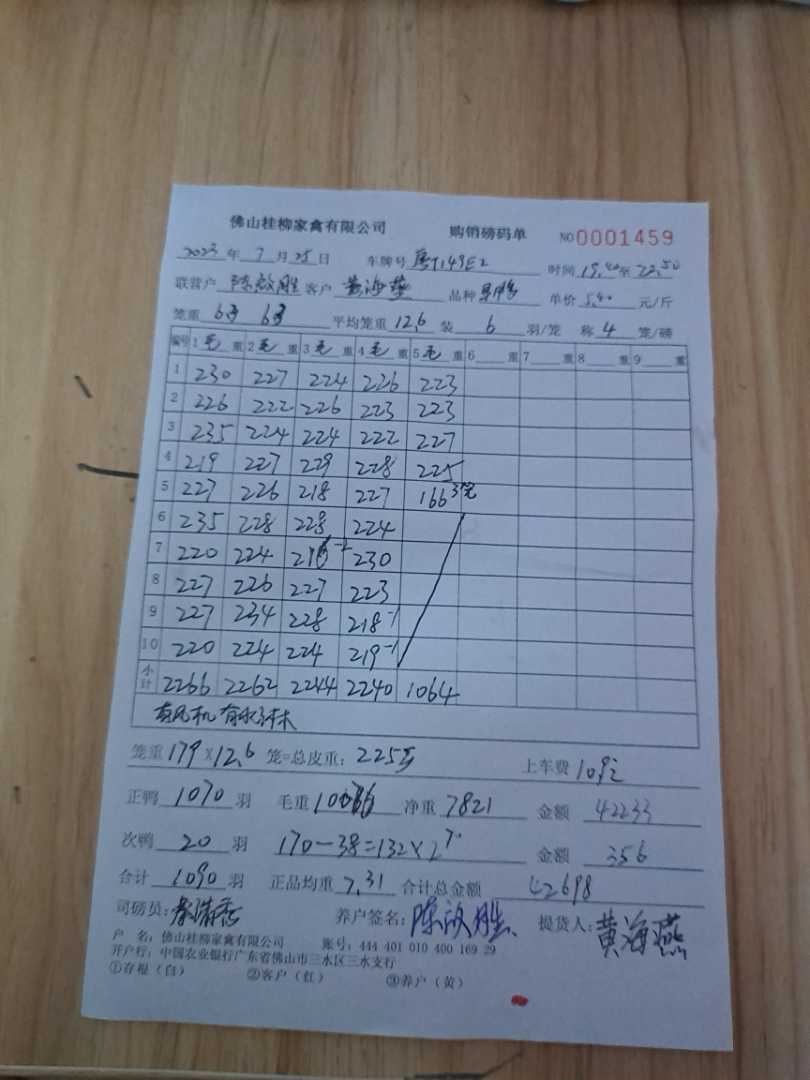 佛山桂柳家禽有限公司 购销磅码单 NO 0001459
2023 年 7 月 25 日 车牌号 149E2 时间 19.40 至 22.50
联营户 陈啟胜 客户 黄海燕 品种 单价 5.40 元/斤
笼重 63 63 平均笼重 12.6 装 6 羽/笼 称 4 笼/磅
编号 1 毛 重 2 毛 重 3 毛 重 4 毛 重 5 毛 重 6 重 7 重 8 重 9 重
1 230 227 224 226 223
2 226 222 226 223 223
3 235 224 224 222 227
4 219 227 229 228 225
5 227 226 218 227 166 3笼
6 235 228 228 224
7 220 224 216 -2 230
8 227 226 227 223
9 227 234 228 218 -1
10 220 224 224 219 -1
小计 2266 2262 2244 2240 1064
有风机 有水淋
笼重 179 × 12.6 笼=总皮重: 2255 上车费 109元
正鸭 1070 羽 毛重 10076 净重 7821 金额 42233
次鸭 20 羽 170-38=132×2.70 金额 356
合计 1090 羽 正品均重 7.31 合计总金额 42698
司磅员: 养户签名: 陈啟胜 提货人: 黄海燕
户 名: 佛山桂柳家禽有限公司 账号: 444 401 010 400 169 29
开户行: 中国农业银行广东省佛山市三水区三水支行
①存根(白) ②客户(红) ③养户(黄)